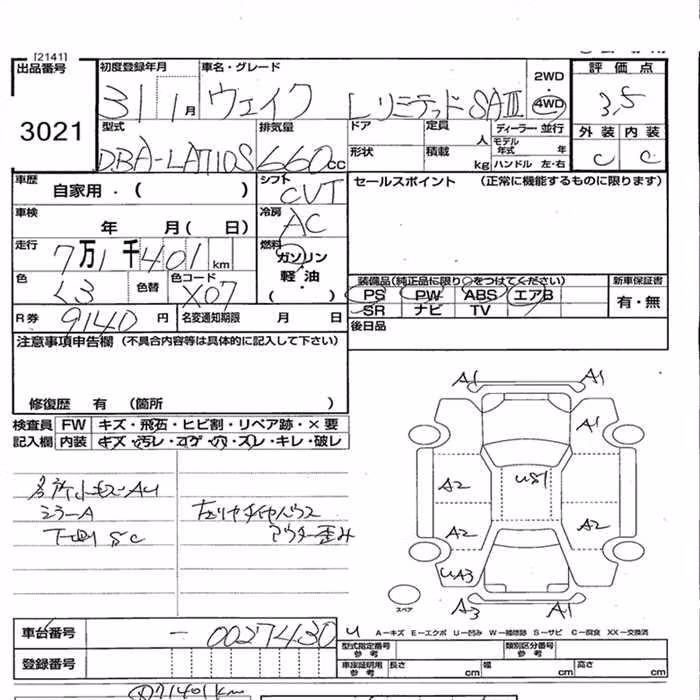 [2141]
出品番号
3021
初度登録年月
31 1月
車名・グレード
ウェイク LリミテッドSAⅢ
2WD
・
4WD
評価点
3.5
外装 内装
C C
型式
DBA-LA710S
排気量
660cc
ドア
形状
定員
人
積載
kg
ディーラー・並行
モデル年式 年
ハンドル 左・右
車歴
自家用・( )
シフト
CVT
セールスポイント (正常に機能するものに限ります)
車検
年 月( 日)
冷房
AC
走行
7万1千401km
燃料
ガソリン
軽・油
( )
色
クロ
色替
色コード
X07
装備品(純正品に限り○をつけてください)
PS PW ABS エアB
SR ナビ TV
新車保証書
有・無
R券 9140円
名変通知期限 月 日
後日品
注意事項申告欄(不具合内容等は具体的に記入して下さい)
修復歴 有 (箇所 )
検査員記入欄
FW キズ・飛石・ヒビ割・リペア跡・×要
内装 キズ・汚レ・コゲ・穴・スレ・キレ・破レ
小キズAU
ミラーA
下回りSC
左リヤタイヤハウス
アウター歪み
A1 A1
A1
US1
A2
A2 A2
UA3
A3 A1
スペア
車台番号
-0027430
登録番号
A-キズ E-エクボ U-凹み W-補修跡 S-サビ C-腐食 XX-交換済
型式指定番号 参考
類別区分番号 参考
車庫証明用 参考
長さ cm 幅 cm 高さ cm
71401km